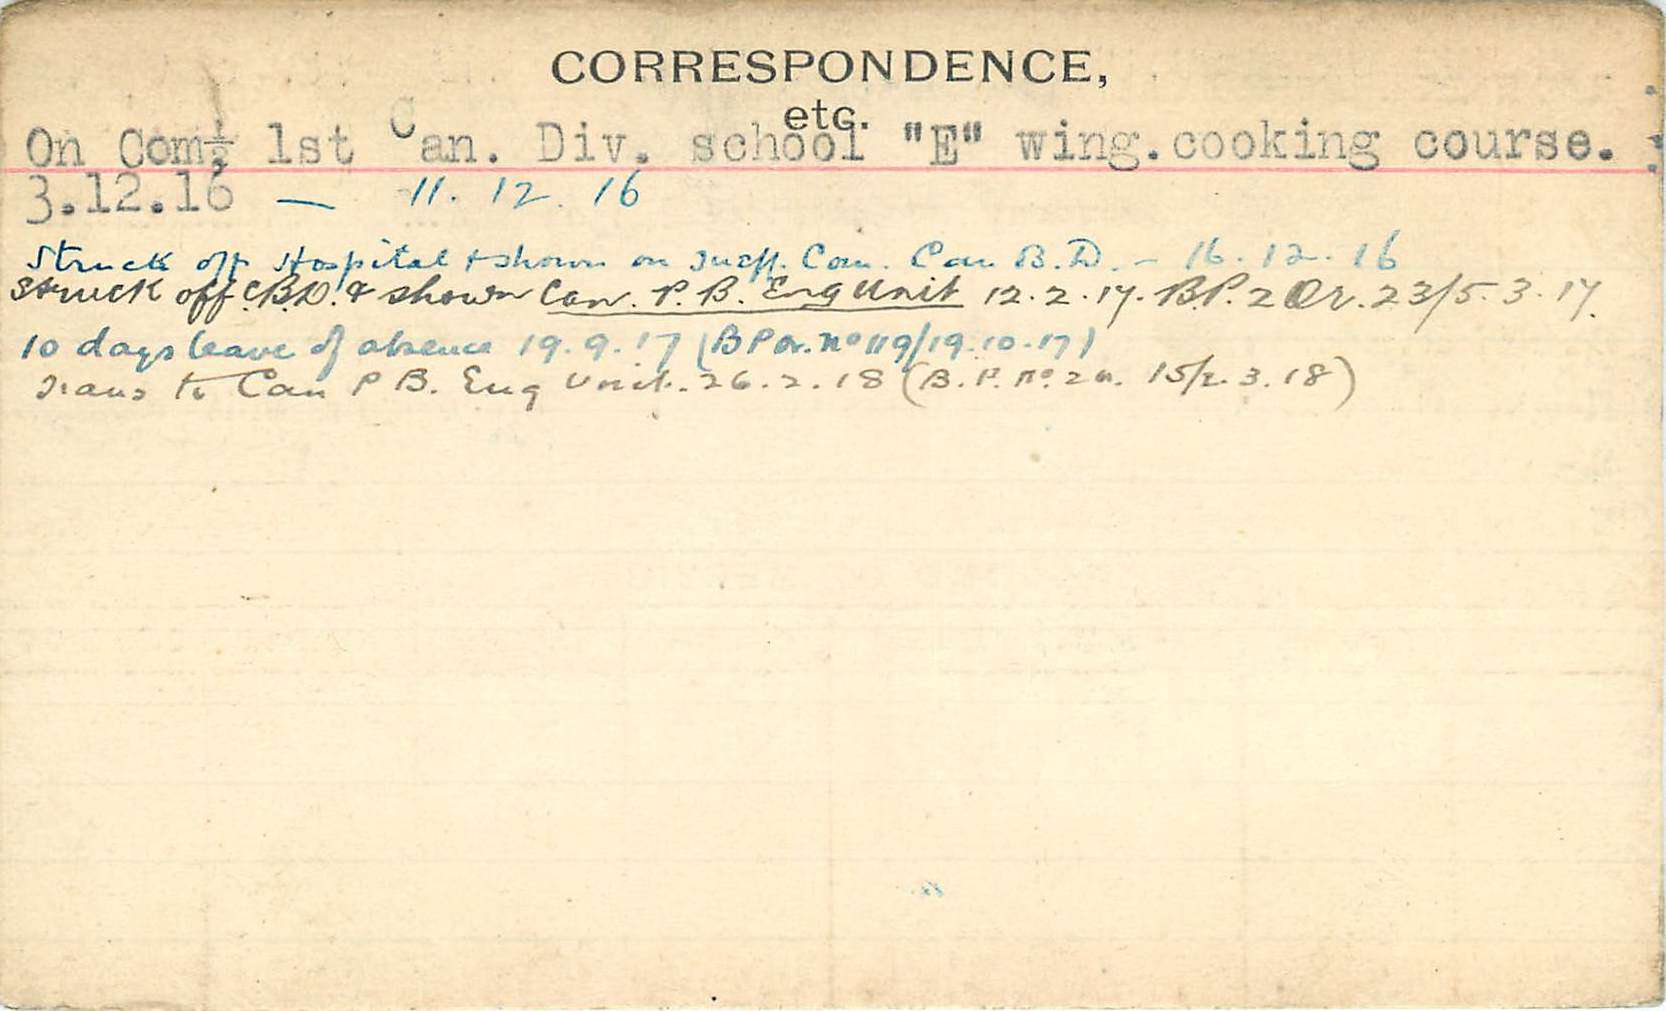 CORRESPONDENCE,
etc.
On Com. 1st Can. Div. school "E" wing.cooking course.
3.12.16 — 11.12.16
Struck off Hospital & shown on Ineff. Com. Can B.D. - 16.12.16
Struck off C.B.D. & shown Can. P.B. Eng Unit 12.2.17. B.P. 2 Or. 23/5.3.17.
10 days leave of absence 19.9.17 (B P Or. No 119/19.10.17)
Trans to Can P B. Eng Unit. 26.2.18 (B.P. No. 15/2.3.18)